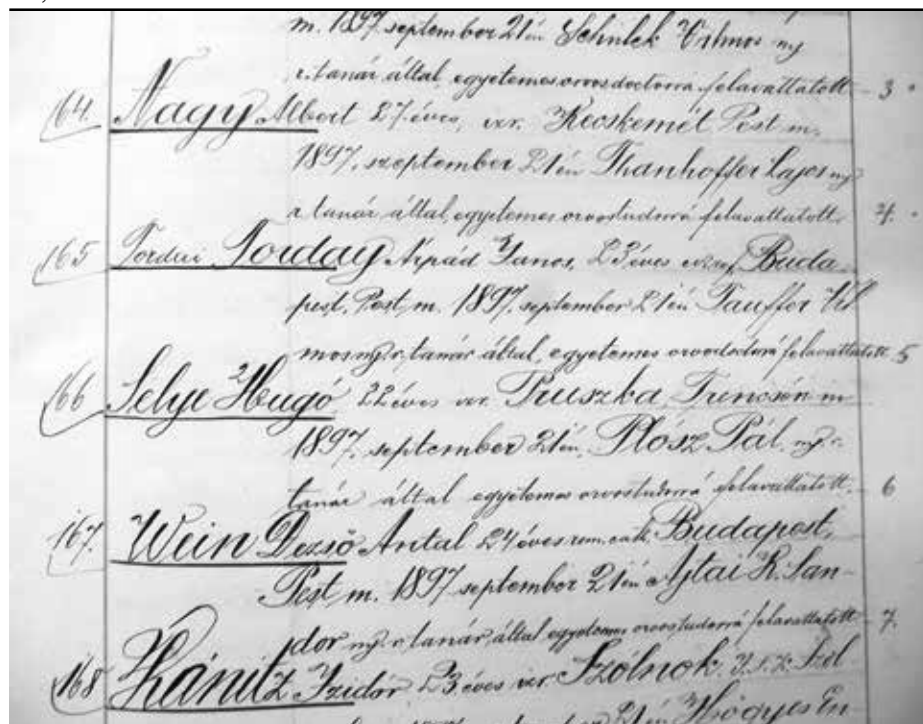 m. 1897. september 21én Schulek Vilmos ny
r. tanár által, egyetemes orvosdoctorrá felavattatott 3
164. Nagy Albert 27 éves, izr. Kecskemét Pest m.
1897. szeptember 21én Thanhoffer Lajos ny
r. tanár által, egyetemes orvostudorrá felavattatott. 4.
165 Tordai Torday Árpád János, 23 éves Buda-
pest, Pest m. 1897. september 21én Tauffer Vil
mos ny. r. tanár által, egyetemes orvosdoctorrá felavattatott 5
166 Selye Hugó 22 éves izr. Pruszka, Trencsén m
1897. september 21én, Plósz Pál ny. r.
tanár által egyetemes orvostudorrá felavattatott. 6
167. Wein Dezső Antal 24 éves rom. cath. Budapest,
Pest, m. 1897 september 21én Ajtai K. Sán-
dor ny. r. tanár által egyetemes orvostudorrá felavattatott 7.
168 Kánitz Izidor 23 éves izr. Szolnok. J. N. K. Szol
21én Hőgyes En-